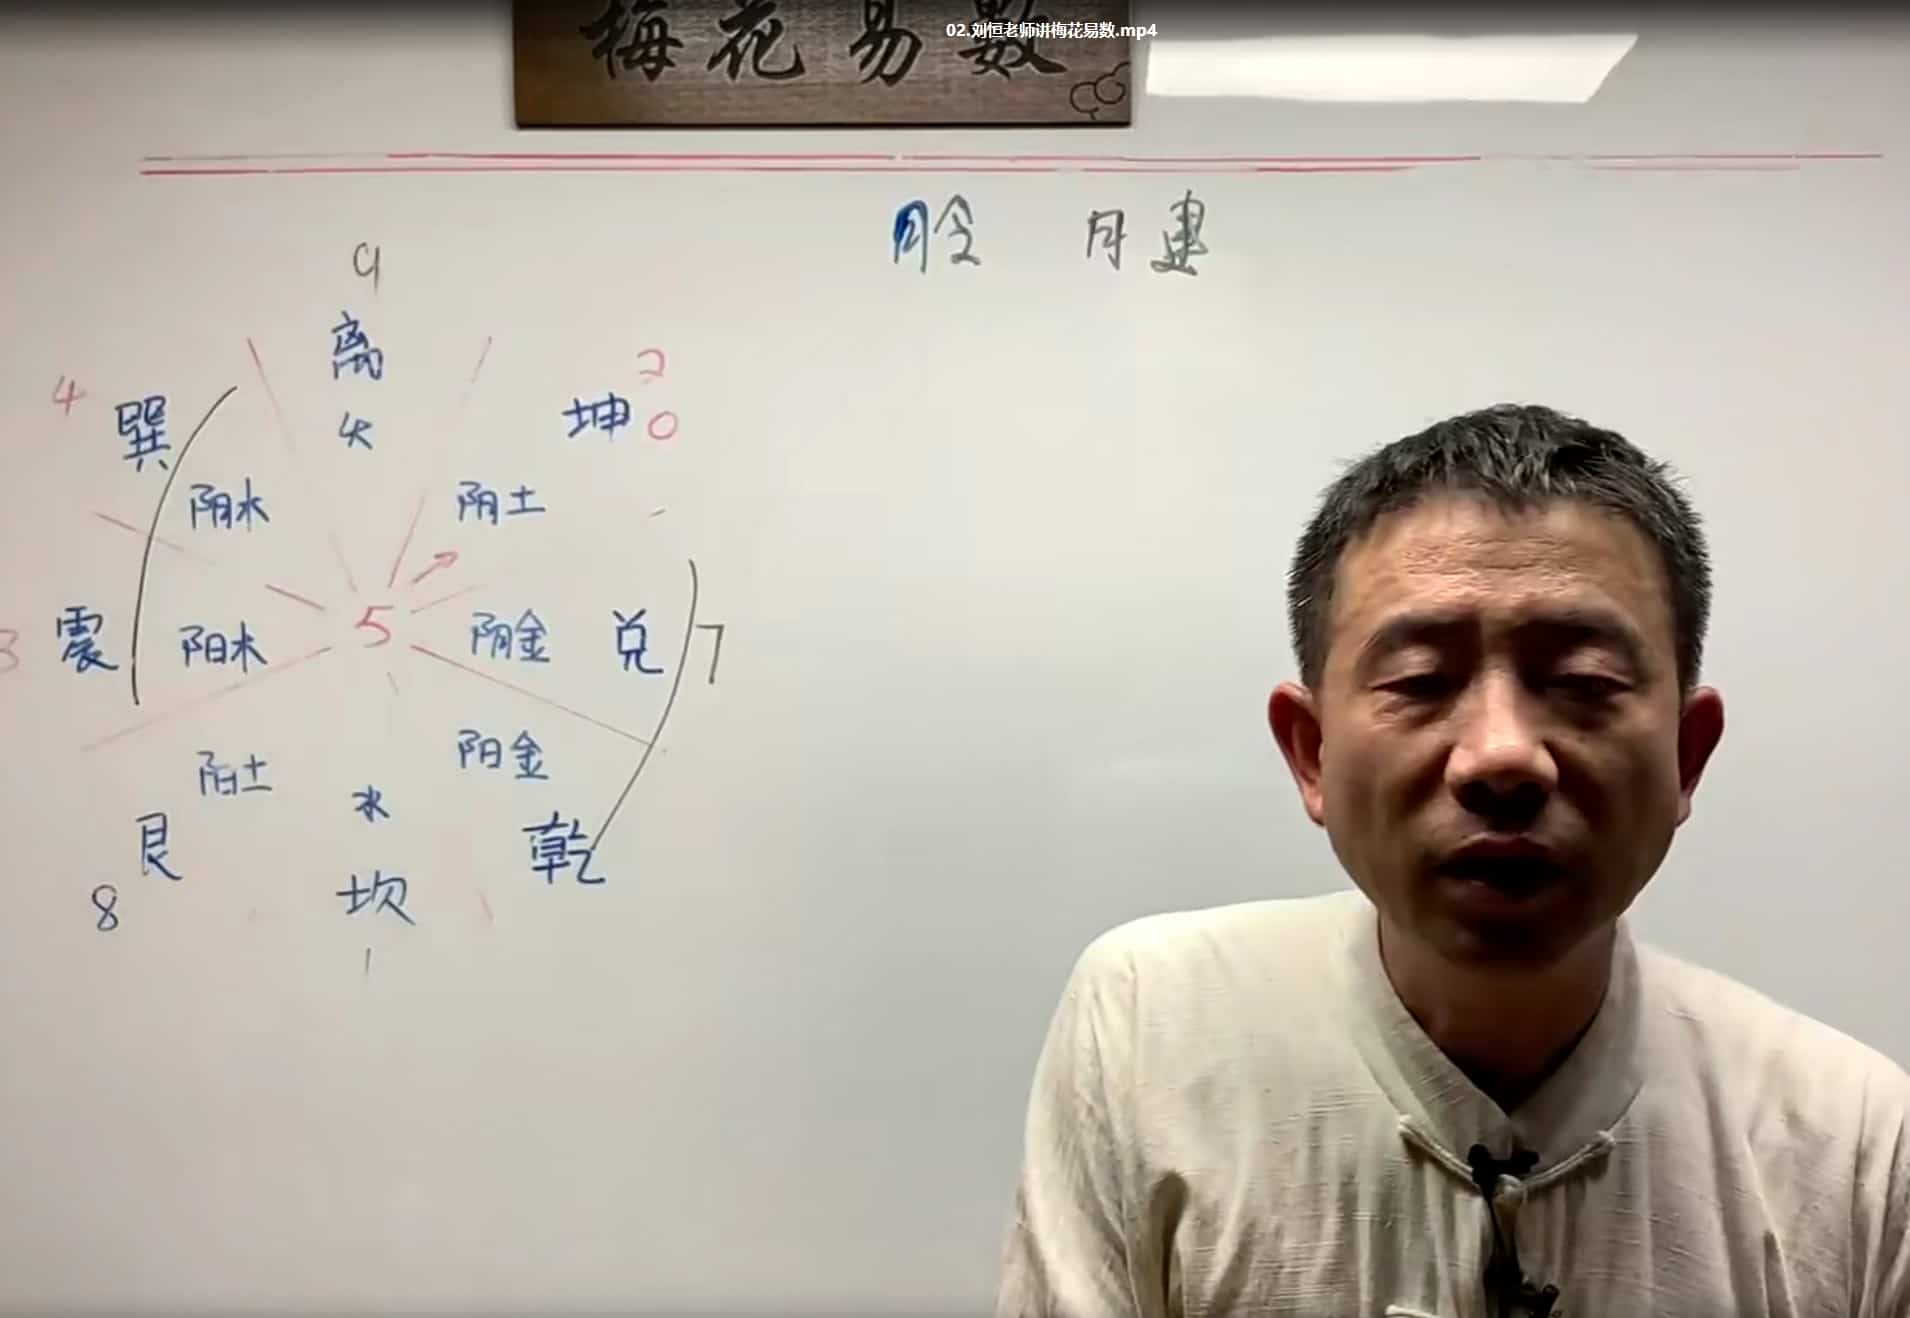 02.刘恒老师讲梅花易数.mp4
梅花易數
月令 月建
9
离
火
4 巽
2
坤 0
阴木 阴土
3 震 阳木 5 阴金 兑 7
阳土 水 阳金
艮 坎 乾
8
1